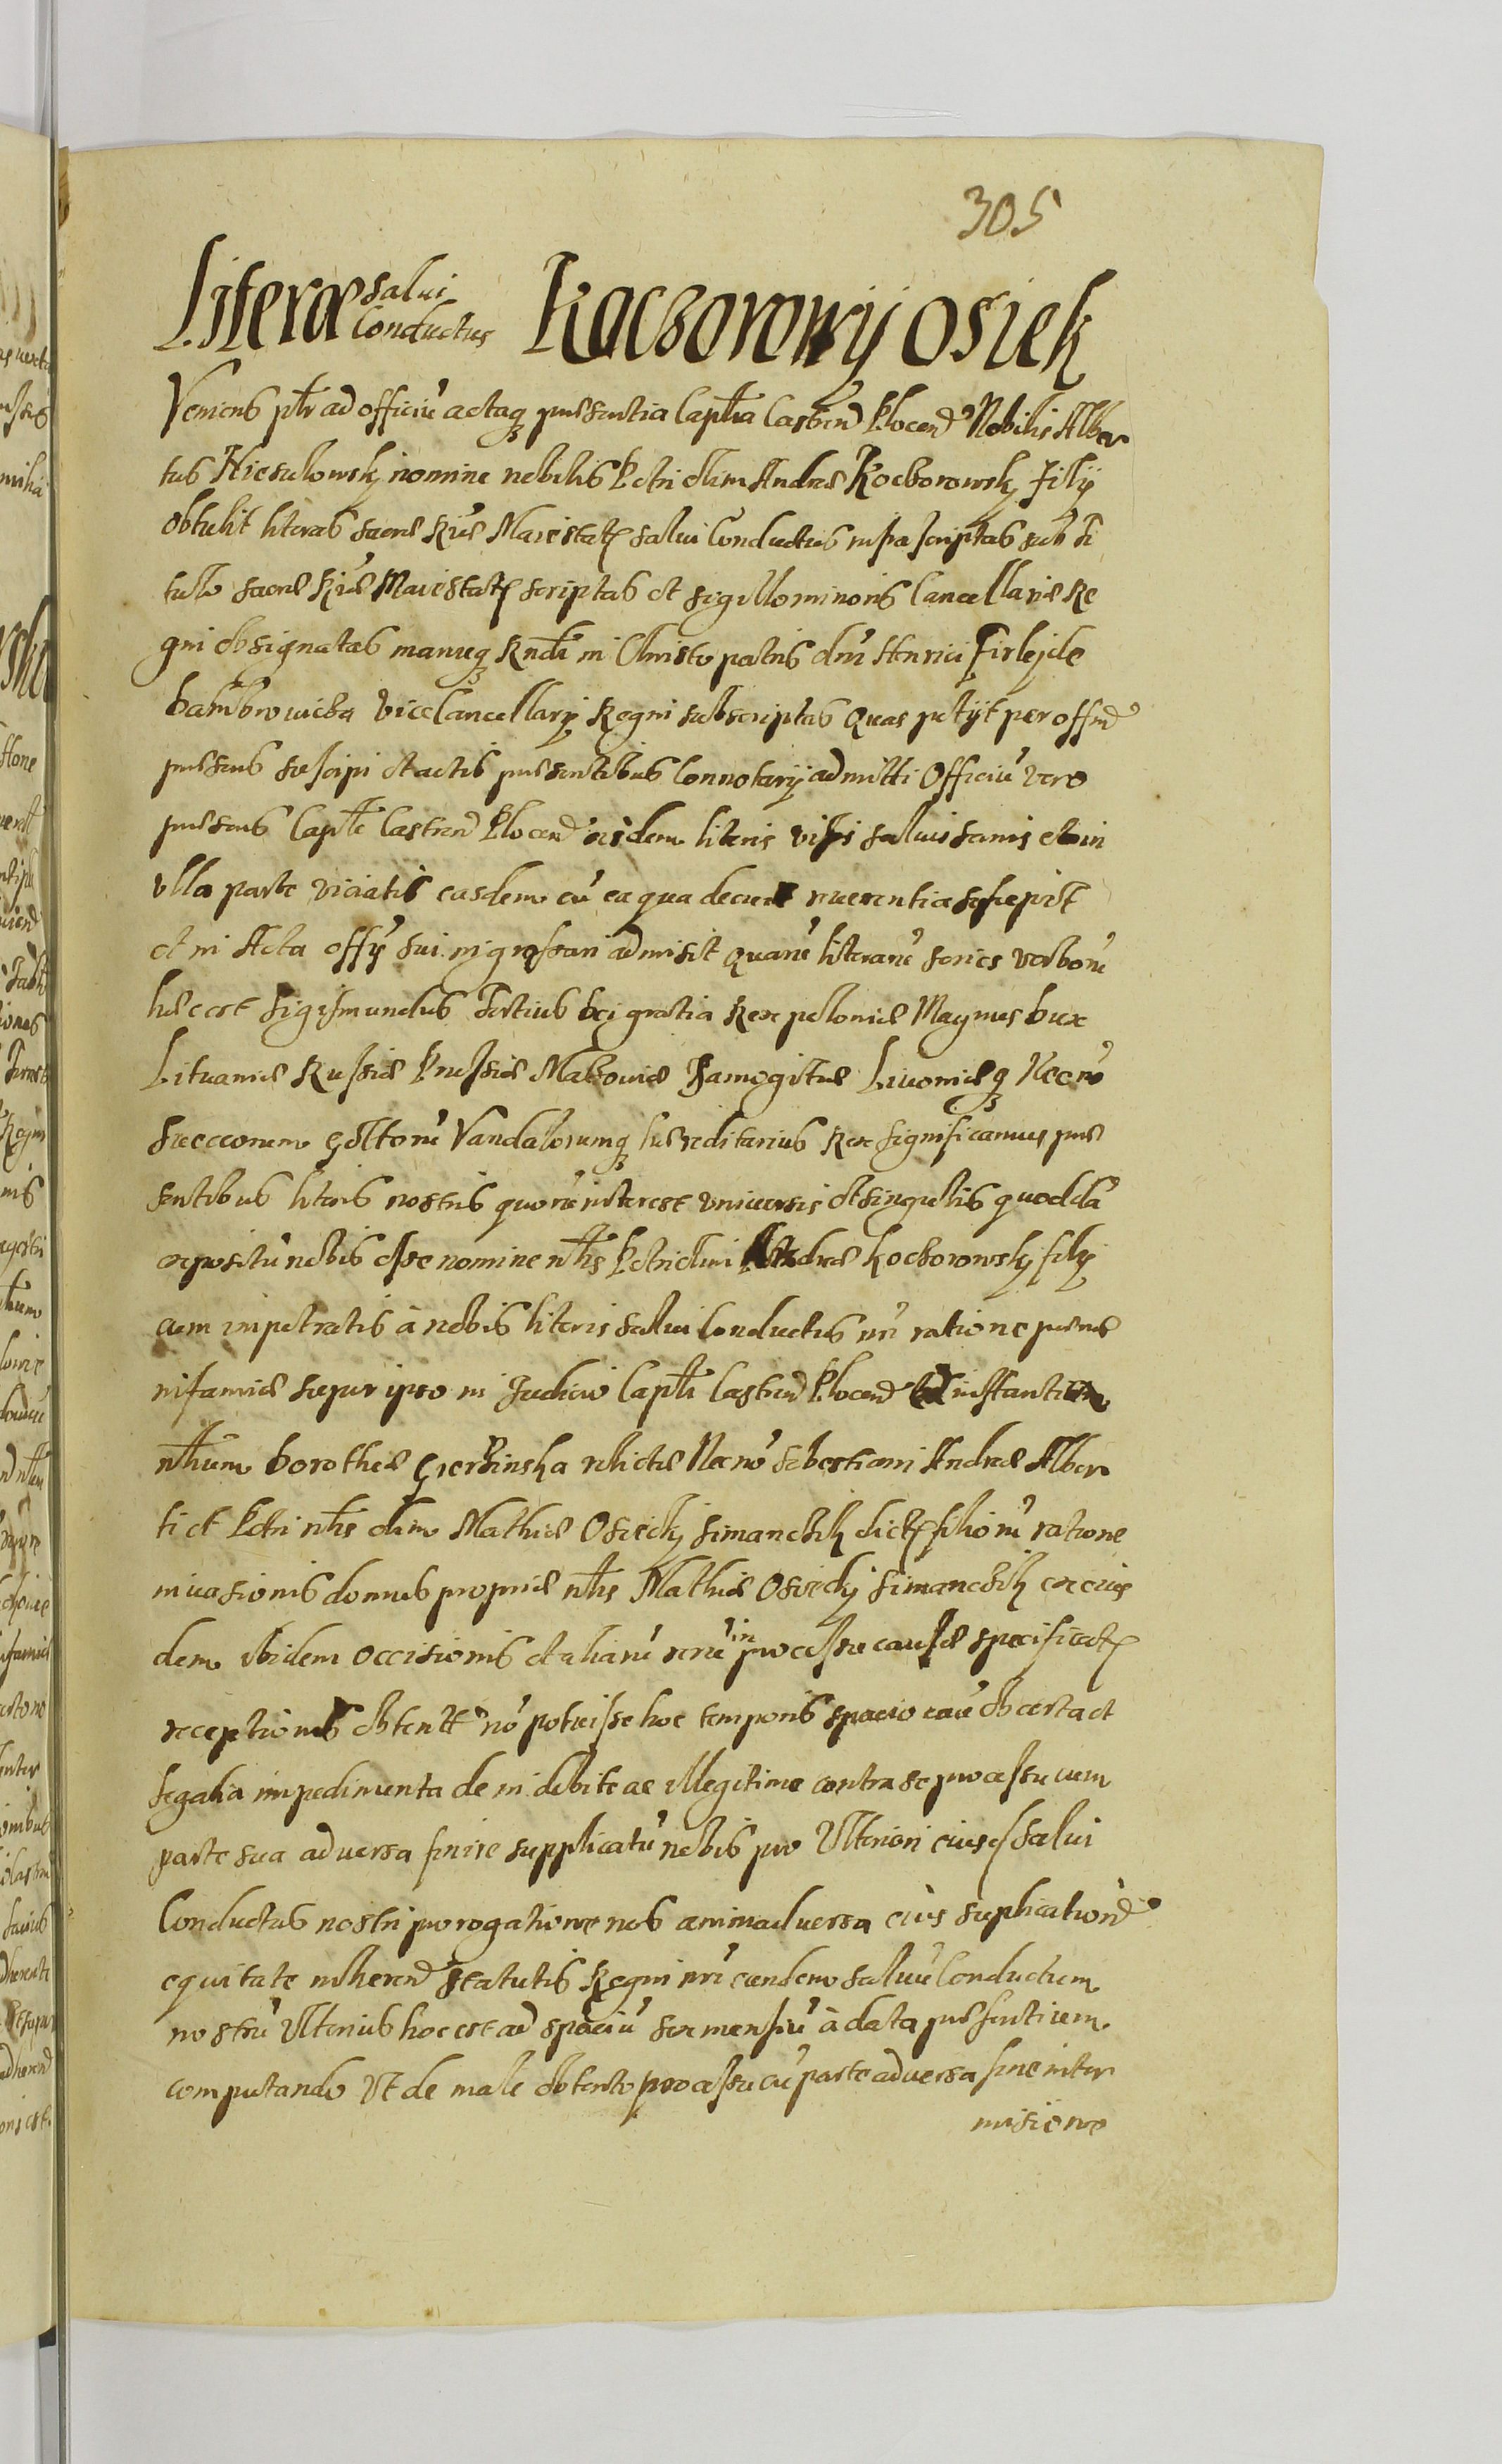 305
Literæ salui Conductus Kaczorowÿ Osiek
Veniens pltr ad officiũ actaq præsentia Captlia Castren Plocen Nobilis Alber
tus Niesulowskj nomine nobilis Petri olim Andreæ Koczorowskj filÿ
obtulit literas sacræ Riæ Maiestatꝭ salui Conductus infra scriptas sub ti
tullo sacræ Riæ Maiestatꝭ scriptas et sigillo minoris Cancellariæ Re
gni obsignatas manuq Rndi in Christo patris dni Henrici Firlej de
Dambrowicza Vice Cancellarÿ Regni subscriptas Quas petÿt per offm
præsens suscipi et actis præsentibus Connotarÿ admitti Officiũ vero
præsens Captle Castren Plocen eisdem literis visis saluis sanis et in
vlla parte viciatis easdem cũ ea qua decuit reuerentia suscepit
et in Acta offÿ sui ingrossari admisit Quarũ literarũ series verborũ
hæc est Sigismundus Tertius Dei gratia Rex Poloniæ Magnus Dux
Lituaniæ Russiæ Prussiæ Mazouiæ Samogitiæ Liuoniæq Necnõ
Sueccorum Gottorũ Vandalorumq hæreditarius Rex Significamus præ
sentibus literis nostris quorũ interest vniuersis et singulis quod cũ
expositũ nobis esse nomine nthis Petri olim Andreæ Koczorowskj filÿ
cum impetratis à nobis literis salui Conductus nri ratione pænæ
infamiæ super ipso in Judicio Captli Castren Plocen ad instantiam
nthium Dorotheæ Gierzinska relictæ Necnõ Sebestiani Andreæ Alber
ti et Petri nthis olim Mathiæ Osieckj Simanczik dictꝭ filiorũ ratione
inuasionis domus propriæ nthis Mathiæ Osieckj Simanczik ex eius
dem ibidem occisionis et aliarũ rerũ in processu causæ specificatꝭ
receptionis obtentt nõ potuisse hoc temporis spacio eaũ ob certa et
legalia impedimenta de indebite ac illegitime contra se processu cum
parte sua aduersa finire supplicatũ nobis pro Vlteriori eius salui
Conductus nostri prorogatione nos animaduersa eius suplication
equitate inheren statutis Regni nri eundem saluũ Conductum
nostrũ Vlterius hoc est ad spaciũ sex mensiũ à data præsentium
computando Vt de male obtento processu cũ parte aduersa sine inter
misione